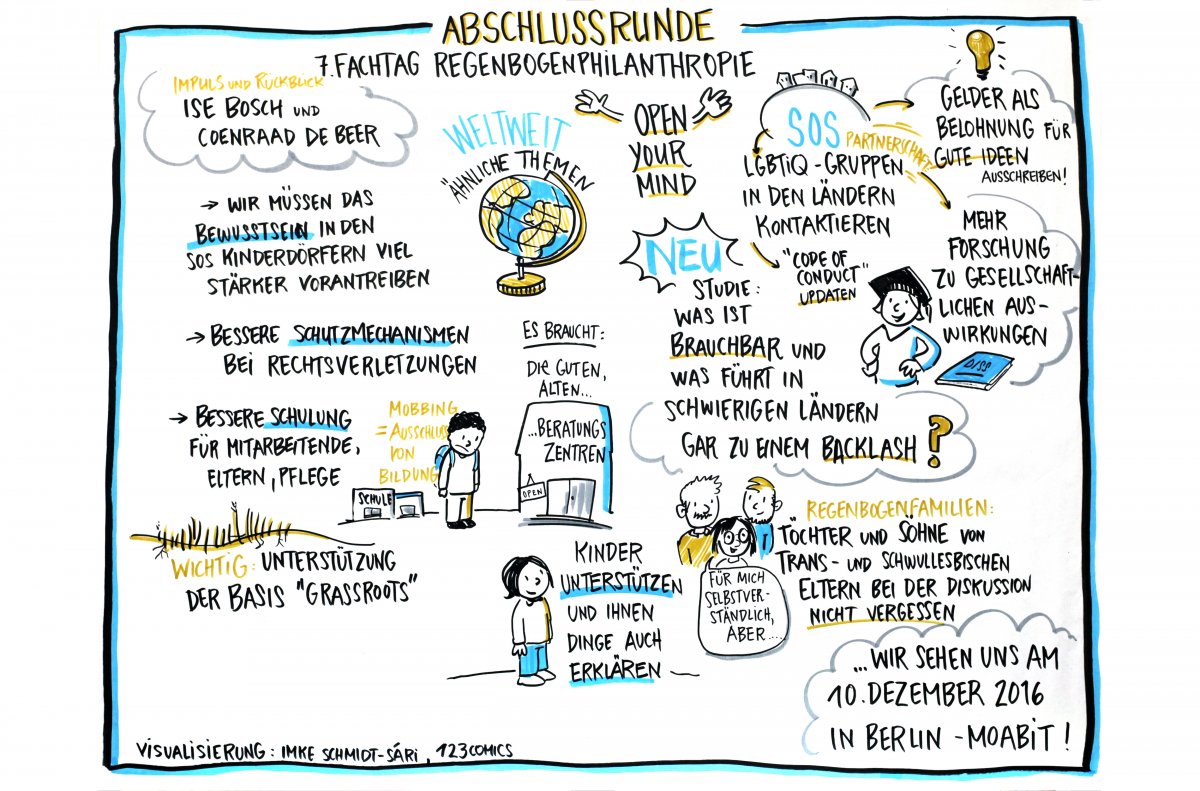 ABSCHLUSSRUNDE
7. FACHTAG REGENBOGENPHILANTHROPIE
IMPULS UND RÜCKBLICK
ISE BOSCH UND
COENRAAD DE BEER
→ WIR MÜSSEN DAS
BEWUSSTSEIN IN DEN
SOS KINDERDÖRFERN VIEL
STÄRKER VORANTREIBEN
→ BESSERE SCHUTZMECHANISMEN
BEI RECHTSVERLETZUNGEN
→ BESSERE SCHULUNG
FÜR MITARBEITENDE,
ELTERN, PFLEGE
MOBBING
= AUSSCHLUSS
VON
BILDUNG
SCHULE
WICHTIG: UNTERSTÜTZUNG
DER BASIS "GRASSROOTS"
WELTWEIT
ÄHNLICHE THEMEN
ES BRAUCHT:
DIE GUTEN,
ALTEN...
...BERATUNGS
ZENTREN
OPEN
KINDER
UNTERSTÜTZEN
UND IHNEN
DINGE AUCH
ERKLÄREN
OPEN
YOUR
MIND
SOS PARTNERSCHAFT
LGBTIQ-GRUPPEN
IN DEN LÄNDERN
KONTAKTIEREN
"CODE OF
CONDUCT"
UPDATEN
GELDER ALS
BELOHNUNG FÜR
GUTE IDEEN
AUSSCHREIBEN!
MEHR
FORSCHUNG
ZU GESELLSCHAFT-
LICHEN AUS-
WIRKUNGEN
DISS
NEU
STUDIE:
WAS IST
BRAUCHBAR UND
WAS FÜHRT IN
SCHWIERIGEN LÄNDERN
GAR ZU EINEM BACKLASH?
REGENBOGENFAMILIEN:
TÖCHTER UND SÖHNE VON
TRANS- UND SCHWULLESBISCHEN
ELTERN BEI DER DISKUSSION
NICHT VERGESSEN
FÜR MICH
SELBSTVER-
STÄNDLICH,
ABER....
...WIR SEHEN UNS AM
10. DEZEMBER 2016
IN BERLIN-MOABIT!
VISUALISIERUNG: IMKE SCHMIDT-SÁRI, 123COMICS